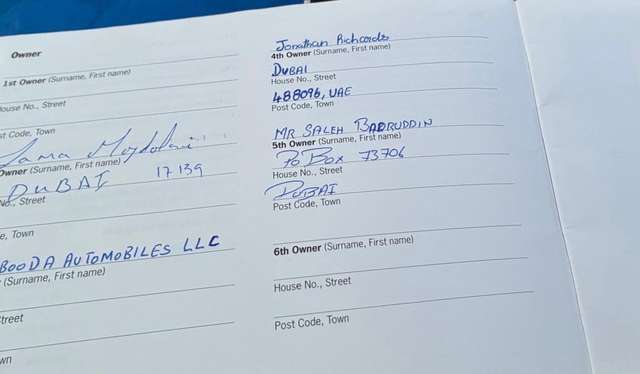 Owner
1st Owner (Surname, First name)
House No., Street
st Code, Town
Lama
Owner (Surname, First name)
DUBAI 17139
No., Street
e, Town
BOODA AUTOMOBILES LLC
(Surname, First name)
treet
wn
Jonathan Richards
4th Owner (Surname, First name)
DUBAI
House No., Street
488096, UAE
Post Code, Town
MR SALEH BADRUDDIN
5th Owner (Surname, First name)
PO BOX 73706
House No., Street
DUBAI
Post Code, Town
6th Owner (Surname, First name)
House No., Street
Post Code, Town